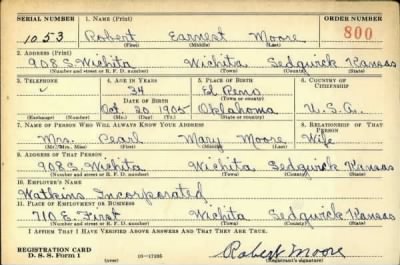 SERIAL NUMBER 1. NAME (Print) ORDER NUMBER
1053 Robert Earnest Moore 800
(First) (Middle) (Last)
2. ADDRESS (Print)
908 S. Wichita Wichita Sedgwick Kansas
(Number and street or R. F. D. number) (Town) (County) (State)
3. TELEPHONE 4. AGE IN YEARS 5. PLACE OF BIRTH 6. COUNTRY OF CITIZENSHIP
34 El Reno
DATE OF BIRTH (Town or county)
Oct. 30 1905 Oklahoma U.S.A.
(Exchange) (Number) (Mo.) (Day) (Yr.) (State or country)
7. NAME OF PERSON WHO WILL ALWAYS KNOW YOUR ADDRESS 8. RELATIONSHIP OF THAT PERSON
Mrs. Pearl Mary Moore Wife
(Mr., Mrs., Miss) (First) (Middle) (Last)
9. ADDRESS OF THAT PERSON
908 S. Wichita Wichita Sedgwick Kansas
(Number and street or R. F. D. number) (Town) (County) (State)
10. EMPLOYER'S NAME
Watkins Incorporated
11. PLACE OF EMPLOYMENT OR BUSINESS
710 E. First Wichita Sedgwick Kansas
(Number and street or R. F. D. number) (Town) (County) (State)
I AFFIRM THAT I HAVE VERIFIED ABOVE ANSWERS AND THAT THEY ARE TRUE.
REGISTRATION CARD
D. S. S. Form 1 (over) 16—17105 Robert Moore
(Registrant's signature)